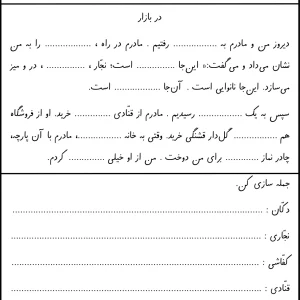 در بازار
دیروز من و مادرم به .................. رفتیم . مادرم در راه ، ................... را به من
نشان می‌داد و می‌گفت:« این‌جا ............... است؛ نجّار ، ............... ، در و میز
می‌سازد. این‌جا نانوایی است . آن‌جا .................. است.
سپس به یک .................. رسیدیم . مادرم از قنّادی ............... خرید. او از فروشگاه
هم .................. گل‌دار قشنگی خرید. وقتی به خانه ..................، مادرم با آن پارچه،
چادر نماز .............. برای من دوخت . من از او خیلی .............. کردم.
جمله سازی کن.
دکّان : ......................................................................
نجّاری : ......................................................................
کفّاشی : ......................................................................
قنّادی : ......................................................................